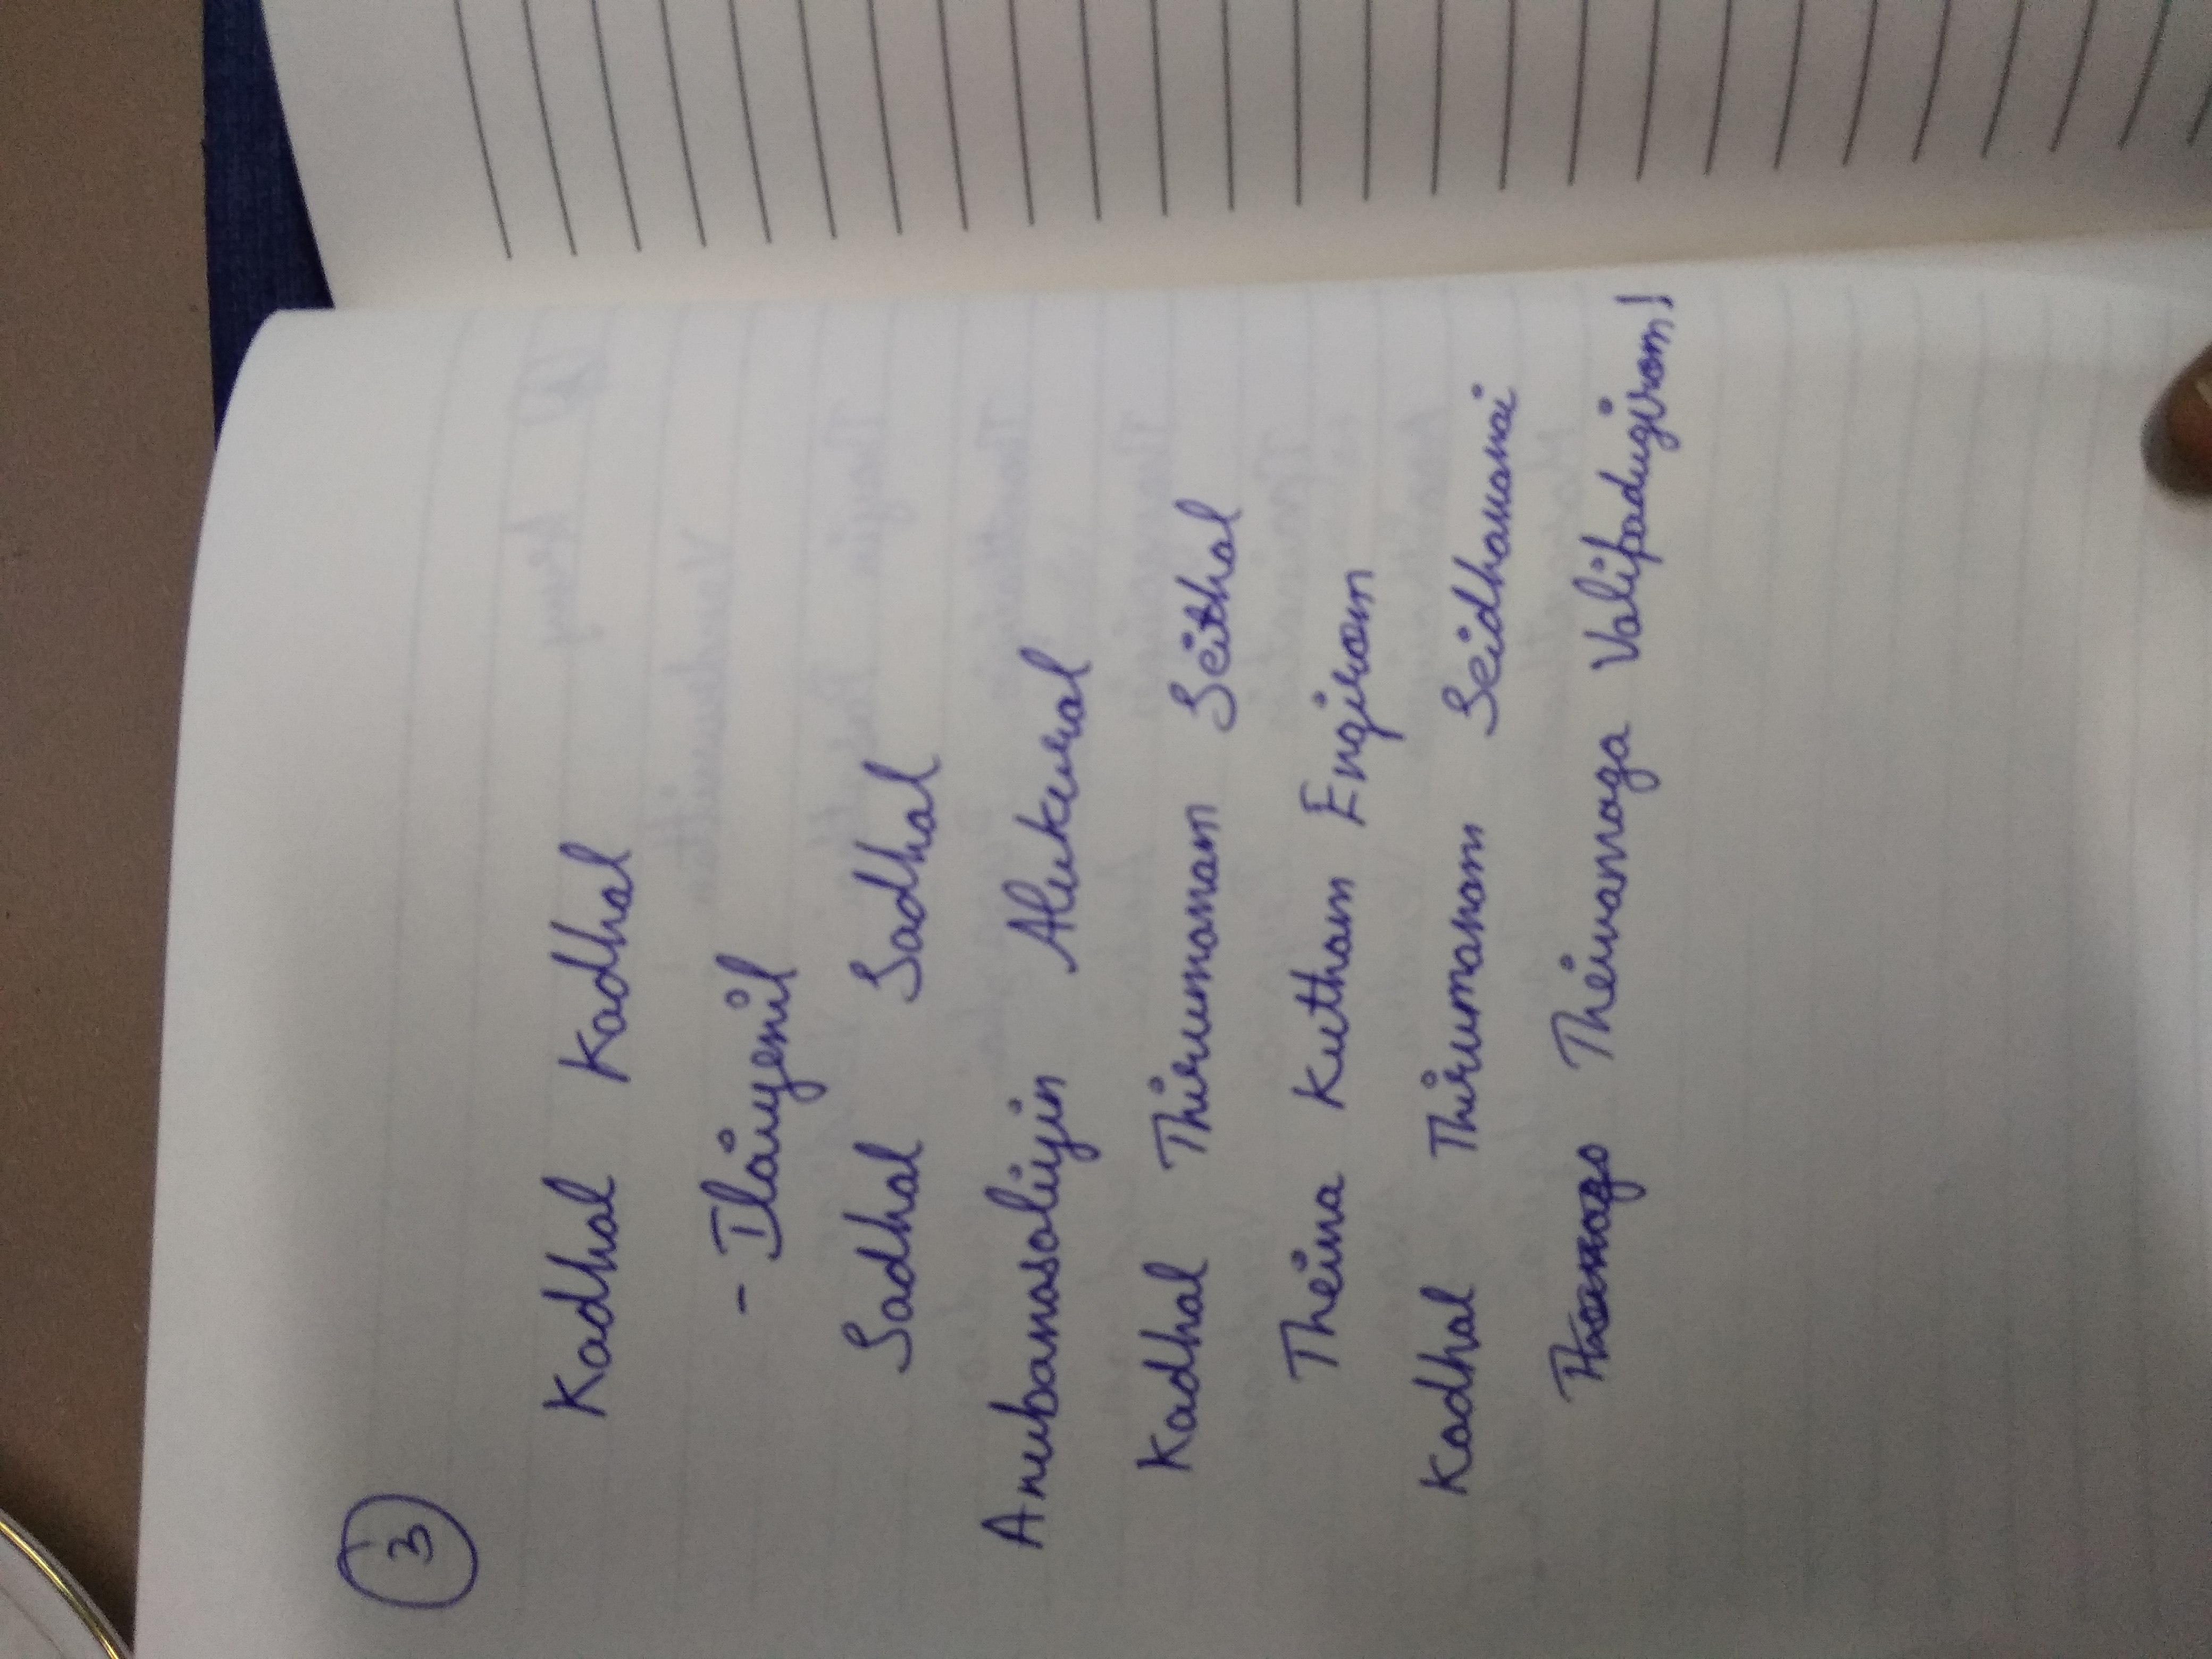 3
Kadhal Kadhal
- Ilaiyenil
Sadhal Sadhal
Anubanasaliyin Alukural
Kadhal Thirumanam Seithal
Theiva Kutham Engirom
Kadhal Thirumanam Seidhavanai
Theivamaga Valipadugirom!